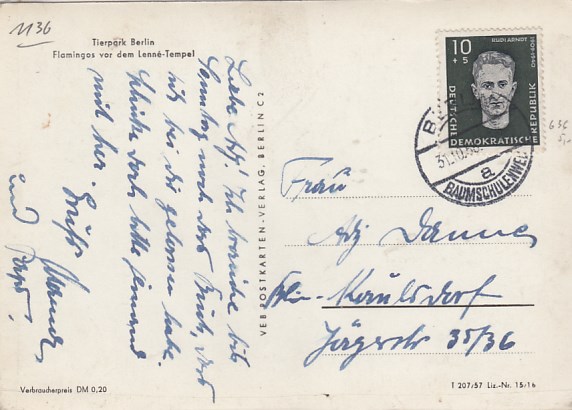 1136
Tierpark Berlin
Flamingos vor dem Lenné-Tempel
Liebe Adj! Ich brauche bis
Sonntag noch das Buch, das
ich bei Dir gelassen habe.
Schicke doch bitte jemand
mit her. Gruß
und
VEB POSTKARTEN-VERLAG, BERLIN C 2
RUDI ARNDT
1909-1940
10
+ 5
DEUTSCHE
DEMOKRATISCHE
REPUBLIK
31.10.58
a
BAUMSCHULENWEG
636
Frau
Adj Danne
Bln-Kaulsdorf
Jägerstr 35/36
Verbraucherpreis DM 0,20
T 207/57 Liz.-Nr. 15/16